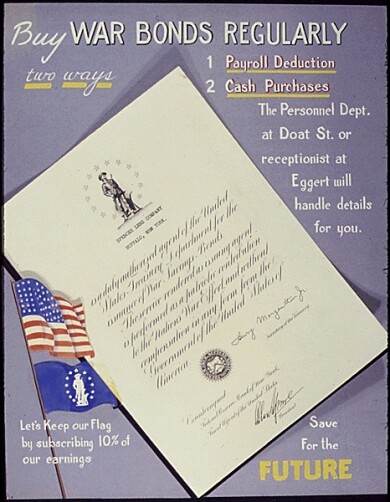 Buy WAR BONDS REGULARLY
two ways
1 Payroll Deduction
2 Cash Purchases
The Personnel Dept.
at Doat St. or
receptionist at
Eggert will
handle details
for you.
SPENCER LENS COMPANY
BUFFALO, NEW YORK.
is a duly authorized agent of the United
States Treasury Department for the
issuance of War Savings Bonds.
The service rendered as issuing agent
is performed as a patriotic contribution
to the Nation's War Effort and without
compensation in any form from the
Government of the United States of
America
Henry Morgenthau Jr.
Secretary of the Treasury
Countersigned
Federal Reserve Bank of New York
Fiscal Agent of the United States
President
Let's Keep our Flag
by subscribing 10% of
our earnings
Save
For the
FUTURE